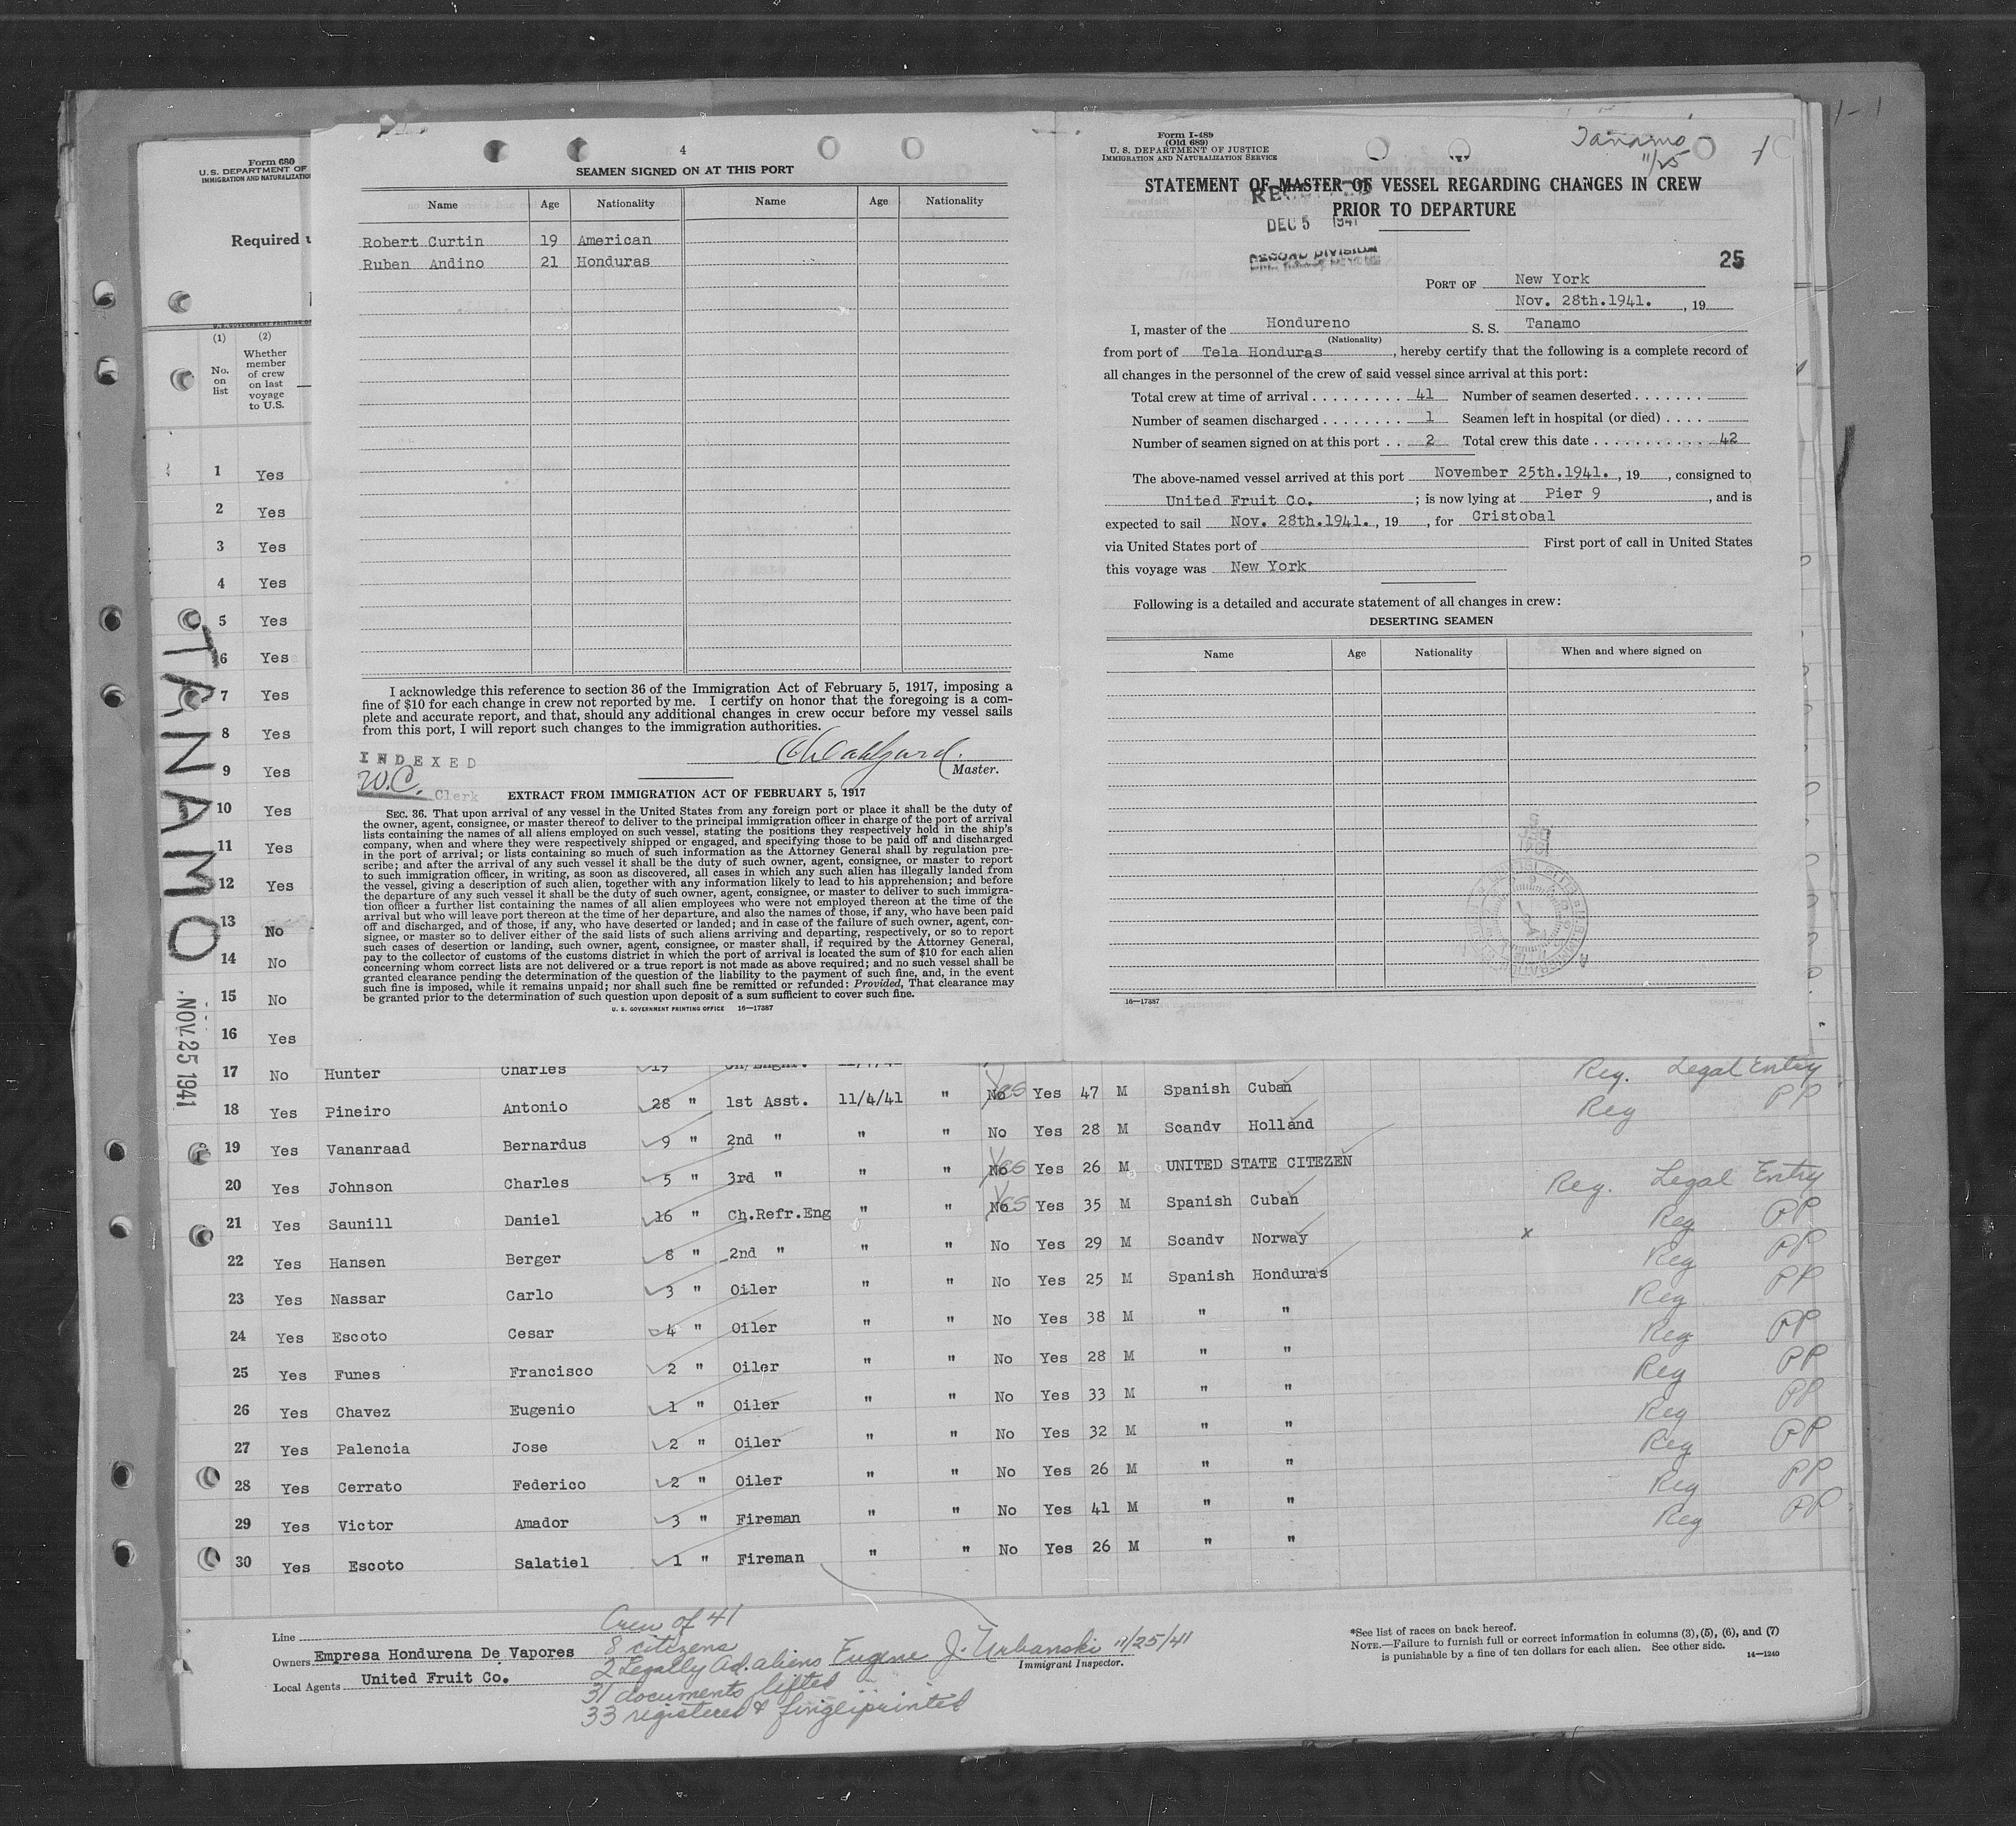 Form 680
U. S. DEPARTMENT OF
IMMIGRATION AND NATURALIZATION
Required
U. S. GOVERNMENT PRINTING
(1) (2)
No. on list
Whether member of crew on last voyage to U.S.
1 Yes
2 Yes
3 Yes
4 Yes
5 Yes
6 Yes
7 Yes
8 Yes
9 Yes
10 Yes
11 Yes
12 Yes
13 No
14 No
15 No
16 Yes
TANAMO
NOV 25 1941
4
SEAMEN SIGNED ON AT THIS PORT
Name Age Nationality Name Age Nationality
Robert Curtin 19 American
Ruben Andino 21 Honduras
I acknowledge this reference to section 36 of the Immigration Act of February 5, 1917, imposing a
fine of $10 for each change in crew not reported by me. I certify on honor that the foregoing is a com-
plete and accurate report, and that, should any additional changes in crew occur before my vessel sails
from this port, I will report such changes to the immigration authorities.
INDEXED
W.C. Clerk
Master.
EXTRACT FROM IMMIGRATION ACT OF FEBRUARY 5, 1917
SEC. 36. That upon arrival of any vessel in the United States from any foreign port or place it shall be the duty of
the owner, agent, consignee, or master thereof to deliver to the principal immigration officer in charge of the port of arrival
lists containing the names of all aliens employed on such vessel, stating the positions they respectively hold in the ship's
company, when and where they were respectively shipped or engaged, and specifying those to be paid off and discharged
in the port of arrival; or lists containing so much of such information as the Attorney General shall by regulation pre-
scribe; and after the arrival of any such vessel it shall be the duty of such owner, agent, consignee, or master to report
to such immigration officer, in writing, as soon as discovered, all cases in which any such alien has illegally landed from
the vessel, giving a description of such alien, together with any information likely to lead to his apprehension; and before
the departure of any such vessel it shall be the duty of such owner, agent, consignee, or master to deliver to such immigra-
tion officer a further list containing the names of all alien employees who were not employed thereon at the time of the
arrival but who will leave port thereon at the time of her departure, and also the names of those, if any, who have been paid
off and discharged, and of those, if any, who have deserted or landed; and in case of the failure of such owner, agent, con-
signee, or master so to deliver either of the said lists of such aliens arriving and departing, respectively, or so to report
such cases of desertion or landing, such owner, agent, consignee, or master shall, if required by the Attorney General,
pay to the collector of customs of the customs district in which the port of arrival is located the sum of $10 for each alien
concerning whom correct lists are not delivered or a true report is not made as above required; and no such vessel shall be
granted clearance pending the determination of the question of the liability to the payment of such fine, and, in the event
such fine is imposed, while it remains unpaid; nor shall such fine be remitted or refunded: Provided, That clearance may
be granted prior to the determination of such question upon deposit of a sum sufficient to cover such fine.
U. S. GOVERNMENT PRINTING OFFICE 16—17387
Form I-489
(Old 689)
U. S. DEPARTMENT OF JUSTICE
IMMIGRATION AND NATURALIZATION SERVICE
Tanamo
11/25
STATEMENT OF MASTER OF VESSEL REGARDING CHANGES IN CREW
PRIOR TO DEPARTURE
DEC 5 1941
RECORD DIVISION
25
PORT OF New York
Nov. 28th.1941. , 19
I, master of the Hondureno S. S. Tanamo
(Nationality)
from port of Tela Honduras , hereby certify that the following is a complete record of
all changes in the personnel of the crew of said vessel since arrival at this port:
Total crew at time of arrival 41 Number of seamen deserted
Number of seamen discharged 1 Seamen left in hospital (or died)
Number of seamen signed on at this port 2 Total crew this date 42
The above-named vessel arrived at this port November 25th.1941. , 19 , consigned to
United Fruit Co. ; is now lying at Pier 9 , and is
expected to sail Nov. 28th.1941. , 19 , for Cristobal
via United States port of First port of call in United States
this voyage was New York
Following is a detailed and accurate statement of all changes in crew:
DESERTING SEAMEN
Name Age Nationality When and where signed on
16—17387
17 No Hunter Charles 19 Reg. Legal Entry
18 Yes Pineiro Antonio 28 " 1st Asst. 11/4/41 " No Yes Yes 47 M Spanish Cuban Reg PP
19 Yes Vananraad Bernardus 9 " 2nd " " " No Yes 28 M Scandv Holland
20 Yes Johnson Charles 5 " 3rd " " " No Yes Yes 26 M UNITED STATE CITEZEN Reg. Legal Entry
21 Yes Saunill Daniel 16 " Ch.Refr.Eng " " No Yes Yes 35 M Spanish Cuban Reg PP
22 Yes Hansen Berger 8 " 2nd " " " No Yes 29 M Scandv Norway x Reg PP
23 Yes Nassar Carlo 3 " Oiler " " No Yes 25 M Spanish Honduras Reg PP
24 Yes Escoto Cesar 4 " Oiler " " No Yes 38 M " " Reg PP
25 Yes Funes Francisco 2 " Oiler " " No Yes 28 M " " Reg PP
26 Yes Chavez Eugenio 1 " Oiler " " No Yes 33 M " " Reg PP
27 Yes Palencia Jose 2 " Oiler " " No Yes 32 M " " Reg PP
28 Yes Cerrato Federico 2 " Oiler " " No Yes 26 M " " Reg PP
29 Yes Victor Amador 3 " Fireman " " No Yes 41 M " " Reg PP
30 Yes Escoto Salatiel 1 " Fireman " " No Yes 26 M " "
Line
Owners Empresa Hondurena De Vapores
Local Agents United Fruit Co.
Crew of 41
8 citizens
2 Legally Ad. aliens
31 documents lifted
33 registered & fingerprinted
Eugene J. Urbanski 11/25/41
Immigrant Inspector.
*See list of races on back hereof.
NOTE.—Failure to furnish full or correct information in columns (3), (5), (6), and (7)
is punishable by a fine of ten dollars for each alien. See other side.
14—1240